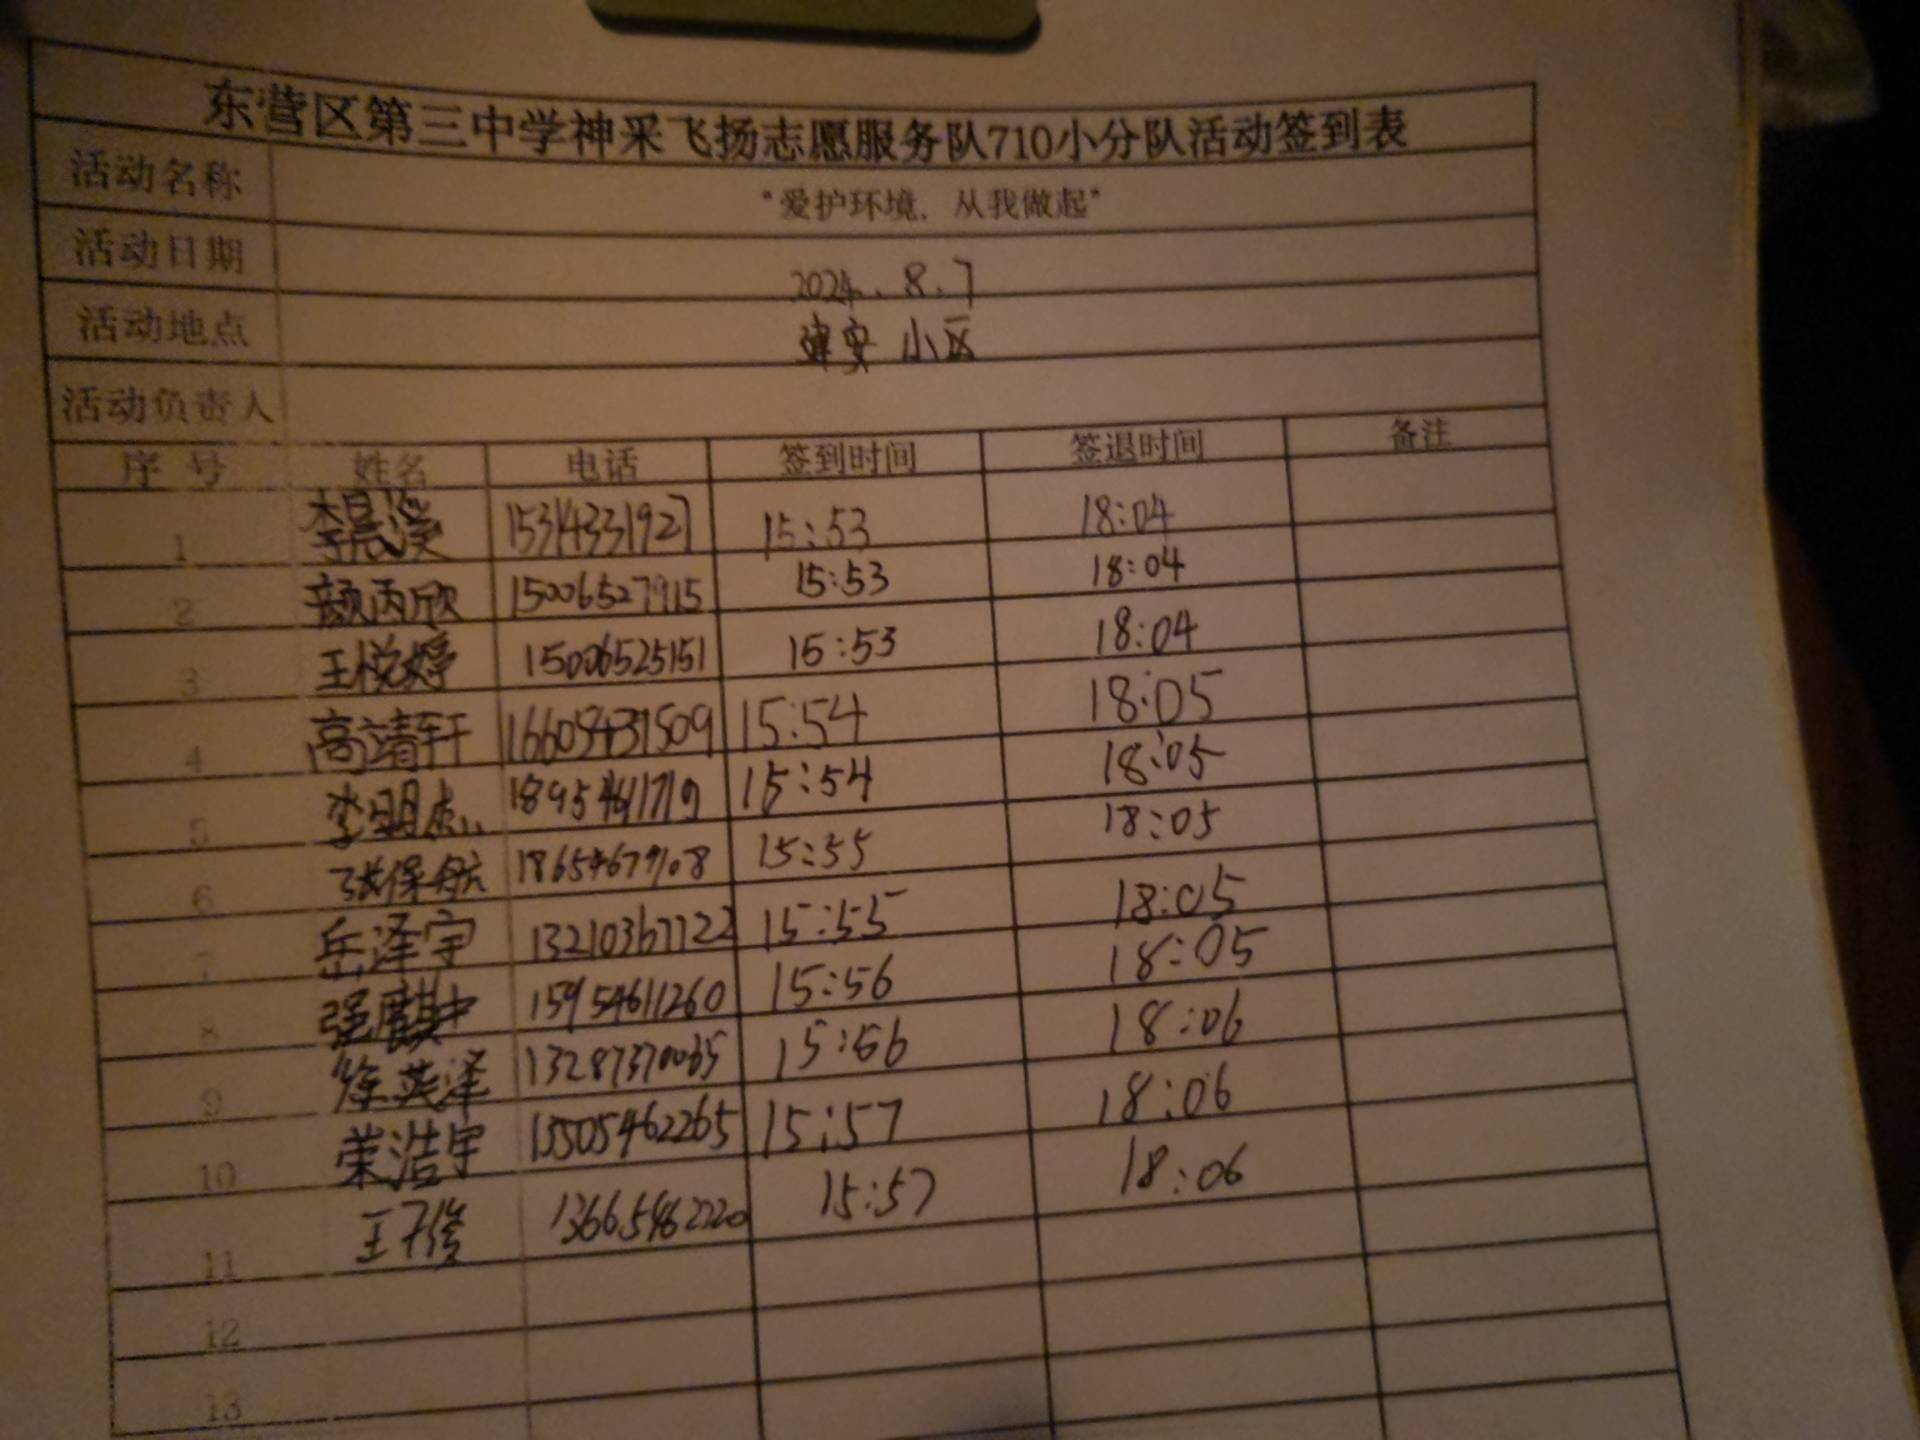 东营区第三中学神采飞扬志愿服务队710小分队活动签到表
活动名称 “爱护环境，从我做起”
活动日期 2024.8.7
活动地点 建安小区
活动负责人
序号 姓名 电话 签到时间 签退时间 备注
1 李晨溪 15314331927 15:53 18:04
2 颜丙欣 15006527915 15:53 18:04
3 王悦婷 15006525151 15:53 18:04
4 高靖轩 15:54 18:05
5 李明 15:54 18:05
6 张保航 15:55 18:05
7 岳泽宇 13210367722 15:55 18:05
8 15954611260 15:56 18:05
9 徐英泽 13287370065 15:56 18:06
10 荣浩宇 15505462265 15:57 18:06
11 王子俊 15:57 18:06
12
13